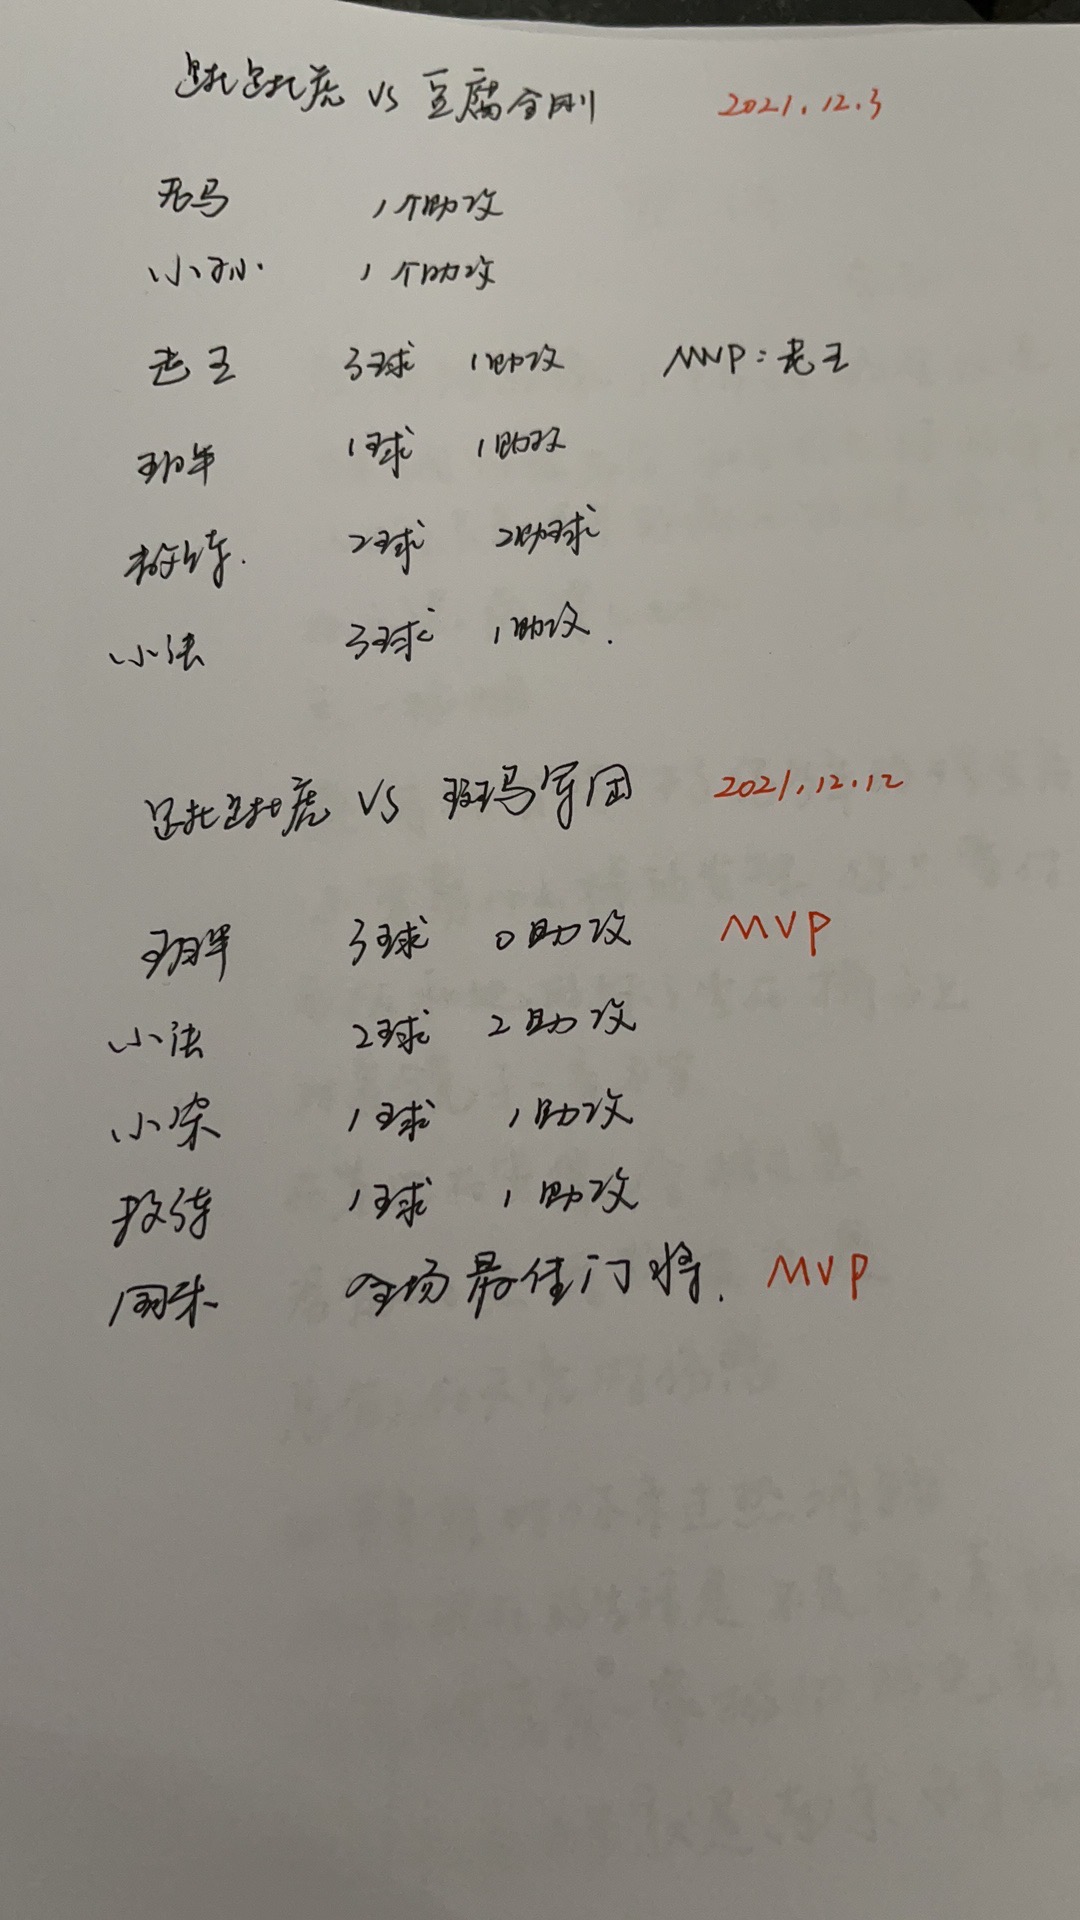 跳跳虎 VS 豆腐金刚 2021.12.3
司马 1个助攻
小孙 1个助攻
老王 3球 1助攻 MVP:老王
班牛 1球 1助攻
教练. 2球 2助球
小法 3球 1助攻.
跳跳虎 VS 斑马军团 2021.12.12
3球 0助攻 MVP
小法 2球 2助攻
小宋 1球 1助攻
教练 1球 1助攻
周朱 全场最佳门将. MVP